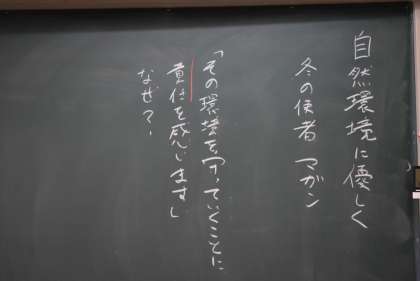 自然環境に優しく
冬の使者 マガン
「その環境を守っていくことに
責任を感じます」
なぜ?